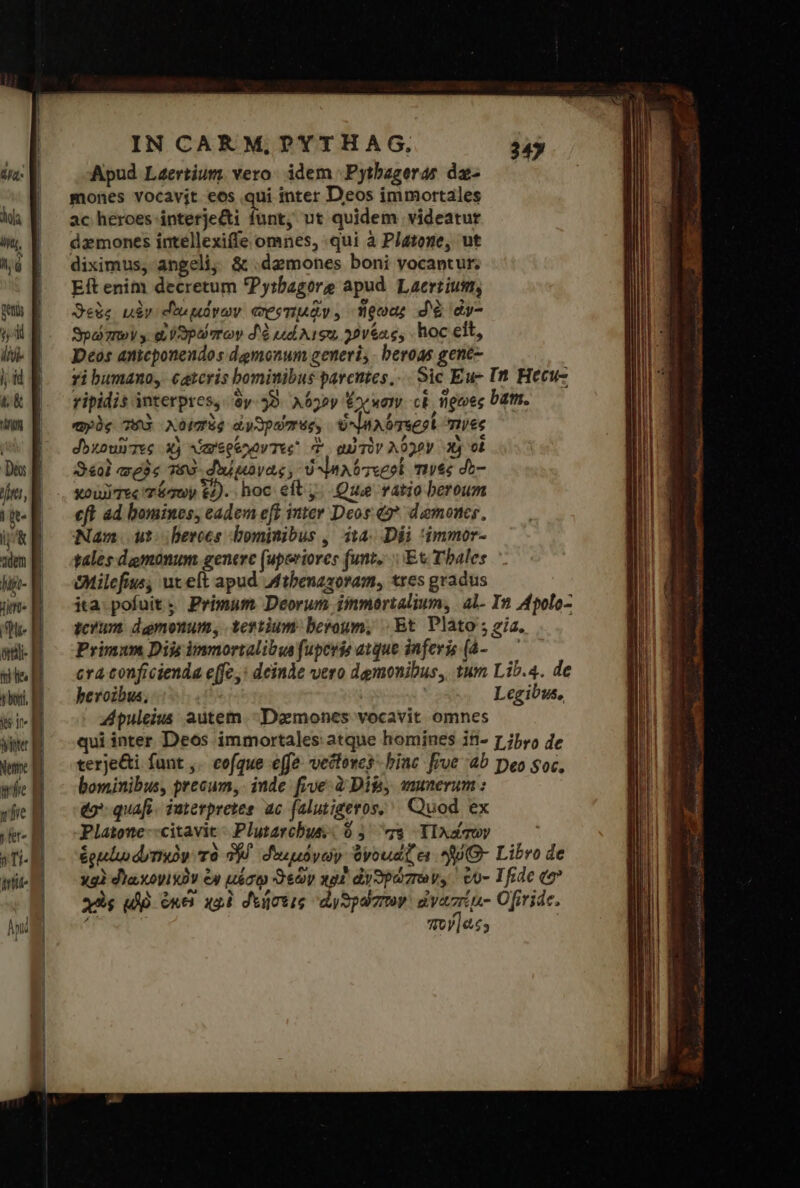 IN CARM. PYTHAG. 347
Apud Laertium vero idem Pythagoras dæ-
mones vocavit eos qui inter Deos immortales
ac heroes interjecti sunt, ut quidem videatur
dæmones intellexisse omnes, qui à Platone, ut
diximus, angeli, & dæmones boni vocantur.
Est enim decretum Pythagoræ apud Laertium,
Θεὺς μὲν δαιμόνων προτιμᾷν, ἥρωας δὲ ἀν-
θρώπων, ἀνθρώπων δὲ μάλιστα γονέας, hoc est,
Deos anteponendos dæmonum generi, heroas gene-
ri humano, cæteris hominibus parentes. Sic Eu- In Hecu-
ripidis interpres, ὃν γὸ λόγον ἔχουσιν οἱ ἥρωες bam.
πρὸς τοὺ λοιποὺς ἀνθρώπους, ὑψηλότεροί τινες
δοκοῦντες καὶ ὑπερέχοντες· τ αὐτὸν λόγον καὶ οἱ
θεοὶ πρὸς τοὺ δαίμονας, ὑψηλότεροί τινές δο-
κοῦντες τούτων εἶ). hoc est, Quæ ratio heroum
est ad homines, eadem est inter Deos & dæmones.
Nam ut heroes hominibus, ita Dii immor-
tales dæmonum genere superiores sunt. Et Thales
Milesius, ut est apud Athenagoram, tres gradus
ita posuit, Primum Deorum immortalium, al- In Apolo-
terum dæmonum, tertium heroum. Et Plato, gia.
Primum Diis immortalibus superis atque inferis sa-
cra conficienda esse, deinde vero dæmonibus, tum Lib. 4. de
heroibus. Legibus.
Apuleius autem Dæmones vocavit omnes
qui inter Deos immortales atque homines in- Libro de
terjecti sunt, eosque esse vectores hinc sive ab Deo Soc.
hominibus, precum, inde sive à Diis, munerum:
& quasi interpretes ac salutigeros. Quod ex
Platone citavit Plutarchus: ὅ, τε Πλάτων
ἑρμηνευτικὸν τὸ τῶν δαιμόνων ὀνομάζει γένος Libro de
καὶ διακονικὸν ἐν μέσῳ θεῶν καὶ ἀνθρώπων, εὐ- Iside &
χὰς μὲν ἐκεῖ καὶ δεήσεις ἀνθρώπων ἀναπέμ- Osiride.
ποντας,